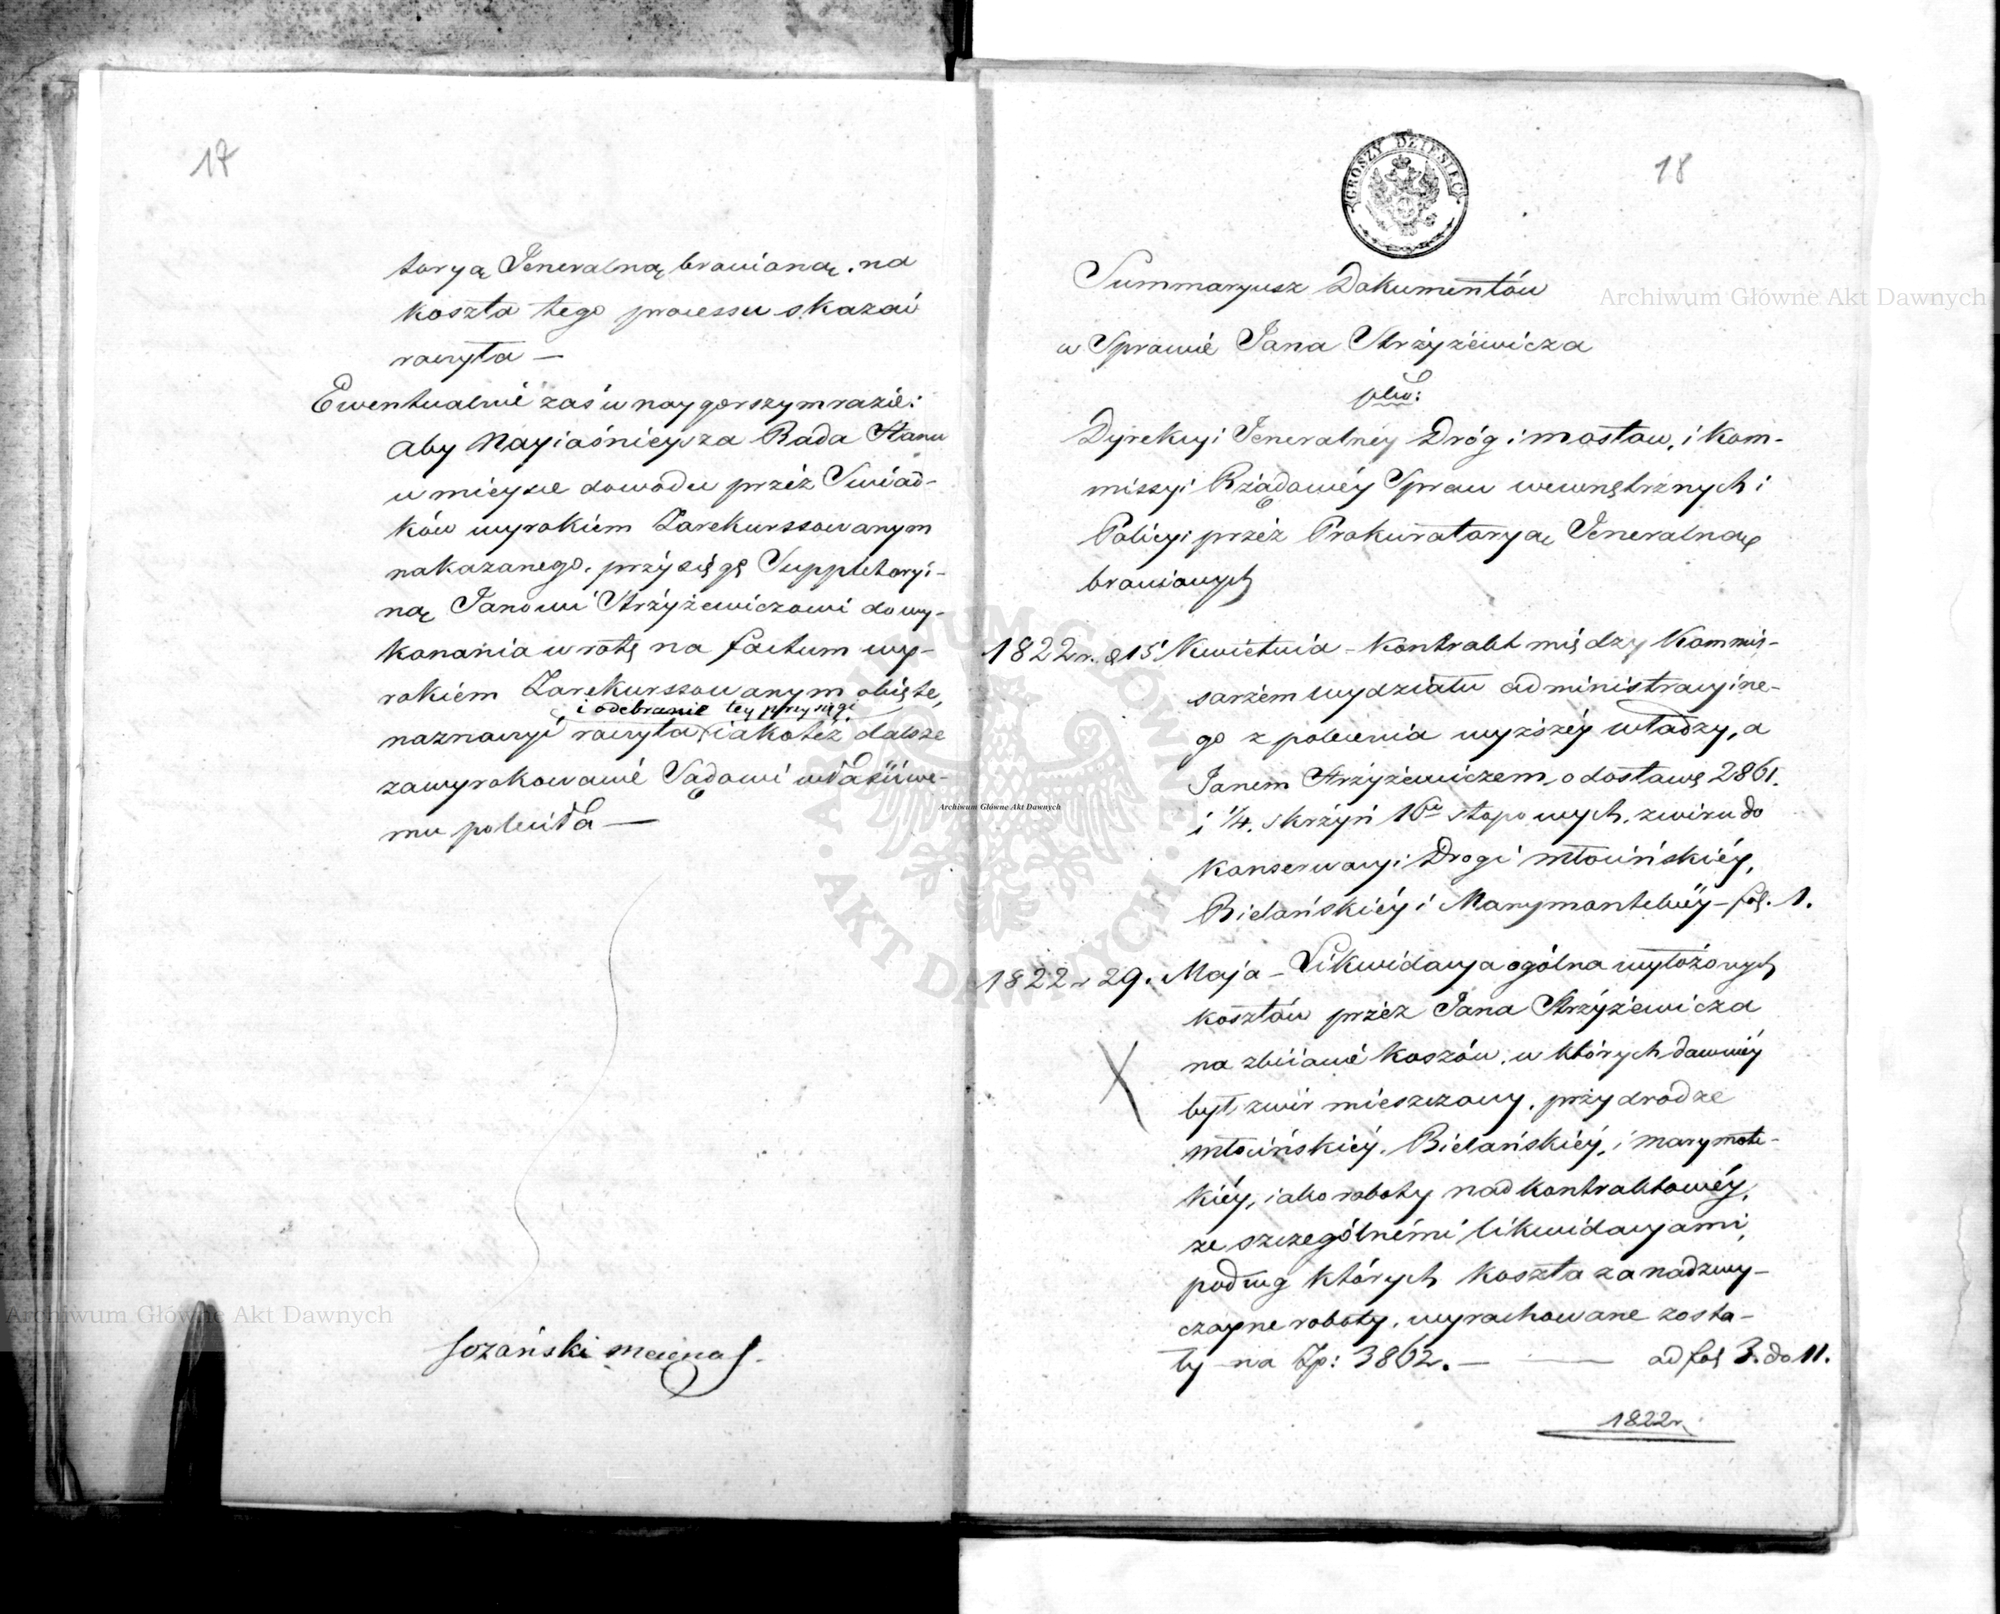 17
toryą Jeneralną bronioną, na
koszta tego processu skazać
raczyła —
Ewentualnie zaś w naygorszym razie:
Aby Nayiaśnieysza Rada Stanu
w mieysce dowodu przéz Swiad-
ków wyrokiem Zarekurssowanym
nakazanego, przysięgę Suppletoryi-
ną Janowi Strżyżewiczowi do wy-
konania w rotę na factum wy-
rokiem Zarekurssowanym obięte,
i odebranie tey przysięgi
naznaczyć raczyła iakoteż dalsze
zawyrokowanie Sądowi właściwe-
mu poleciła —
Jozański Mecenas.
18
GROSZY DZIESIĘĆ
Summaryusz Dokumentów
w Sprawie Jana Strżyżewicza
plko:
Dyrekcyi Jeneralnéy Dróg i mostow, i Kom-
missyi Rządowéy Spraw wewnętrznych i
Policyi przéz Prokuratoryą Jeneralną
bronionych
1822 r. d 15 Kwietnia – Kontrakt między Kommis-
sarzem wydziału administracyine-
go z polecenia wyższéy władzy, a
Janem Strżyżewiczem, o dostawę 2861.
i 1/4. skrżyń 16u stopowych, zwiru do
Konserwacyi Drogi młocińskiéy,
Bielańskiéy i Marymontckiéy – fol. 1.
1822 r 29. Maja – Likwidacya ogólna wyłożonych
kosztów przéz Jana Strżyżewicza
na zbiianie koszów, w których dawniéy
był zwir mieszczony, przy drodze
młocińskiéy, Bielańskiéy, i marymonte-
kiéy, iako roboty nadkontraktowéy,
ze szczególnémi likwidacyami,
podług których koszta za nadzwy-
czayne roboty, wyrachowane zosta-
ły na Zp: 3862. — — ad fol 3. do 11.
1822r.
Archiwum Główne Akt Dawnych
Archiwum Główne Akt Dawnych
Archiwum Główne Akt Dawnych
ARCHIWUM GŁÓWNE AKT DAWNYCH